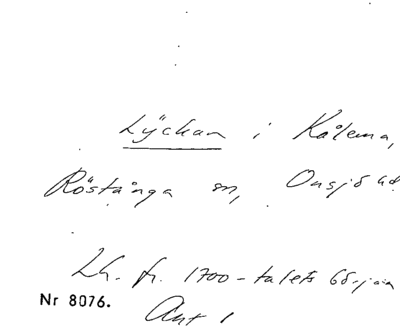 Lÿckan i Kålema,
Röstånga sn, Onsjö hd.
Lh. fr. 1700-talets början
Nr 8076. Akt 1